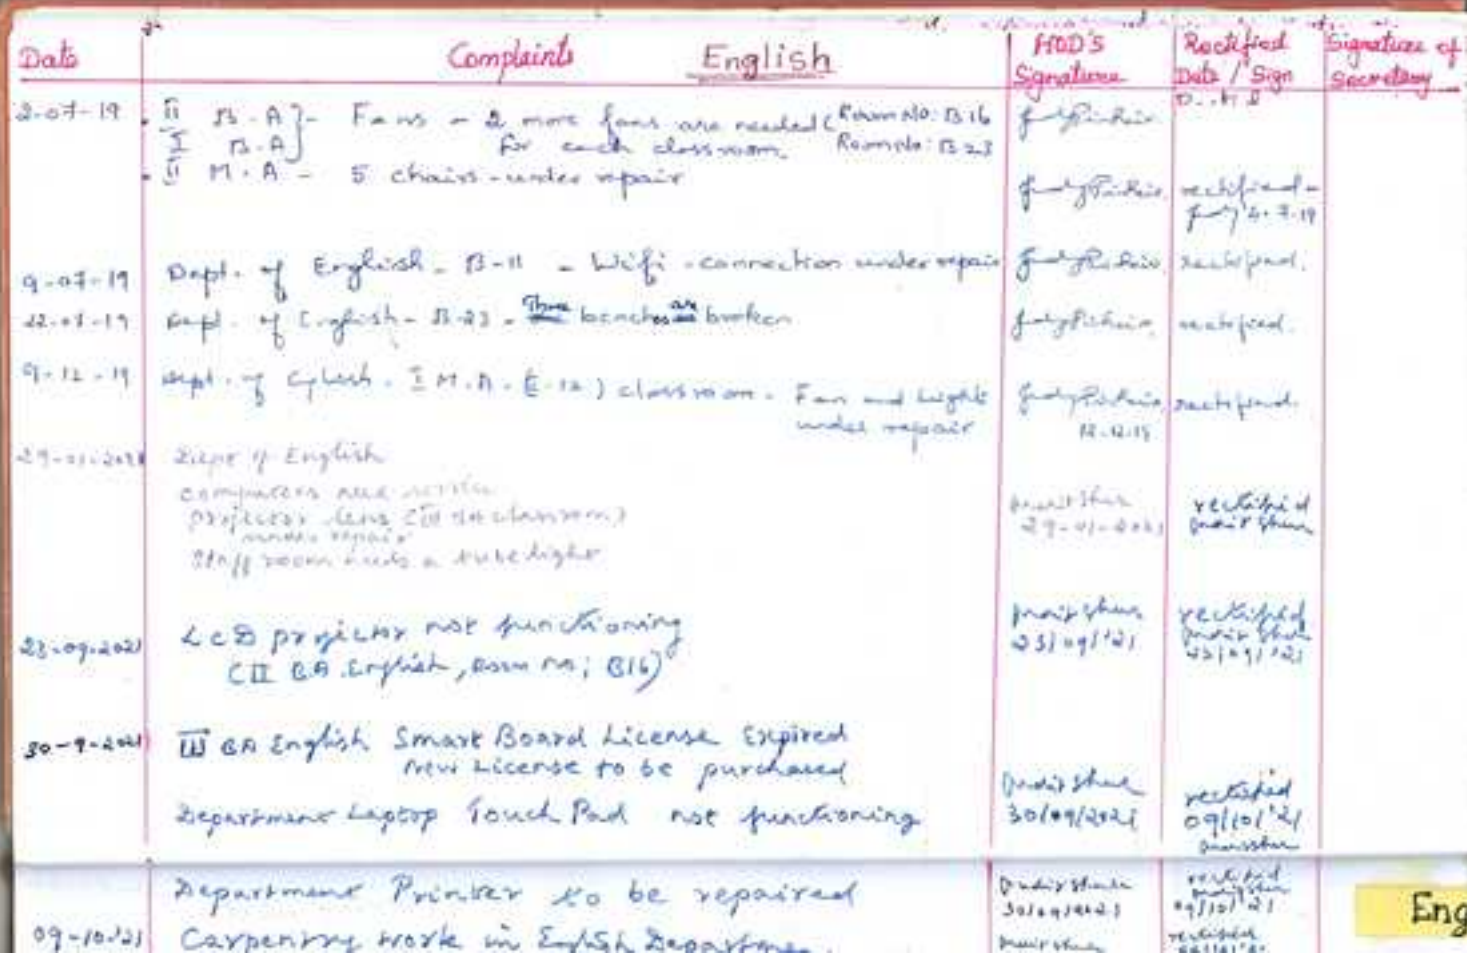 Date Complaints English HOD'S Signature Rectified Date / Sign Signature of Secretary
2-07-19 II B.A }- Fans - 2 more fans are needed (Room No: B16
I B.A for each classroom. Room No: B23
II M.A - 5 chairs - under repair rectified -
4.7.19
9-07-19 Dept. of English - B-11 - Wifi - connection under repair rectified.
22-07-19 Dept. of English - B-23 - Three benches are broken rectified.
9-12-19 Dept. of English - I M.A. (E-12) classroom - Fan and Lights rectified.
under repair 12.12.19
29-01-2021 Dept of English
computers need service
projector lens (III BA classroom) rectified
under repair 29-01-2021
Staff room needs a tubelight
23-09-2021 LCD projector not functioning 23/09/'21 rectified
(II BA English, Room no; B16) 23/09/'21
30-9-2021 III BA English Smart Board License Expired
New License to be purchased
Department Laptop Touch Pad not functioning 30/09/2021 rectified 09/10/'21
Department Printer to be repaired 30/09/2021 rectified 09/10/'21
09-10-'21 Carpentry work in English Department. rectified
Eng